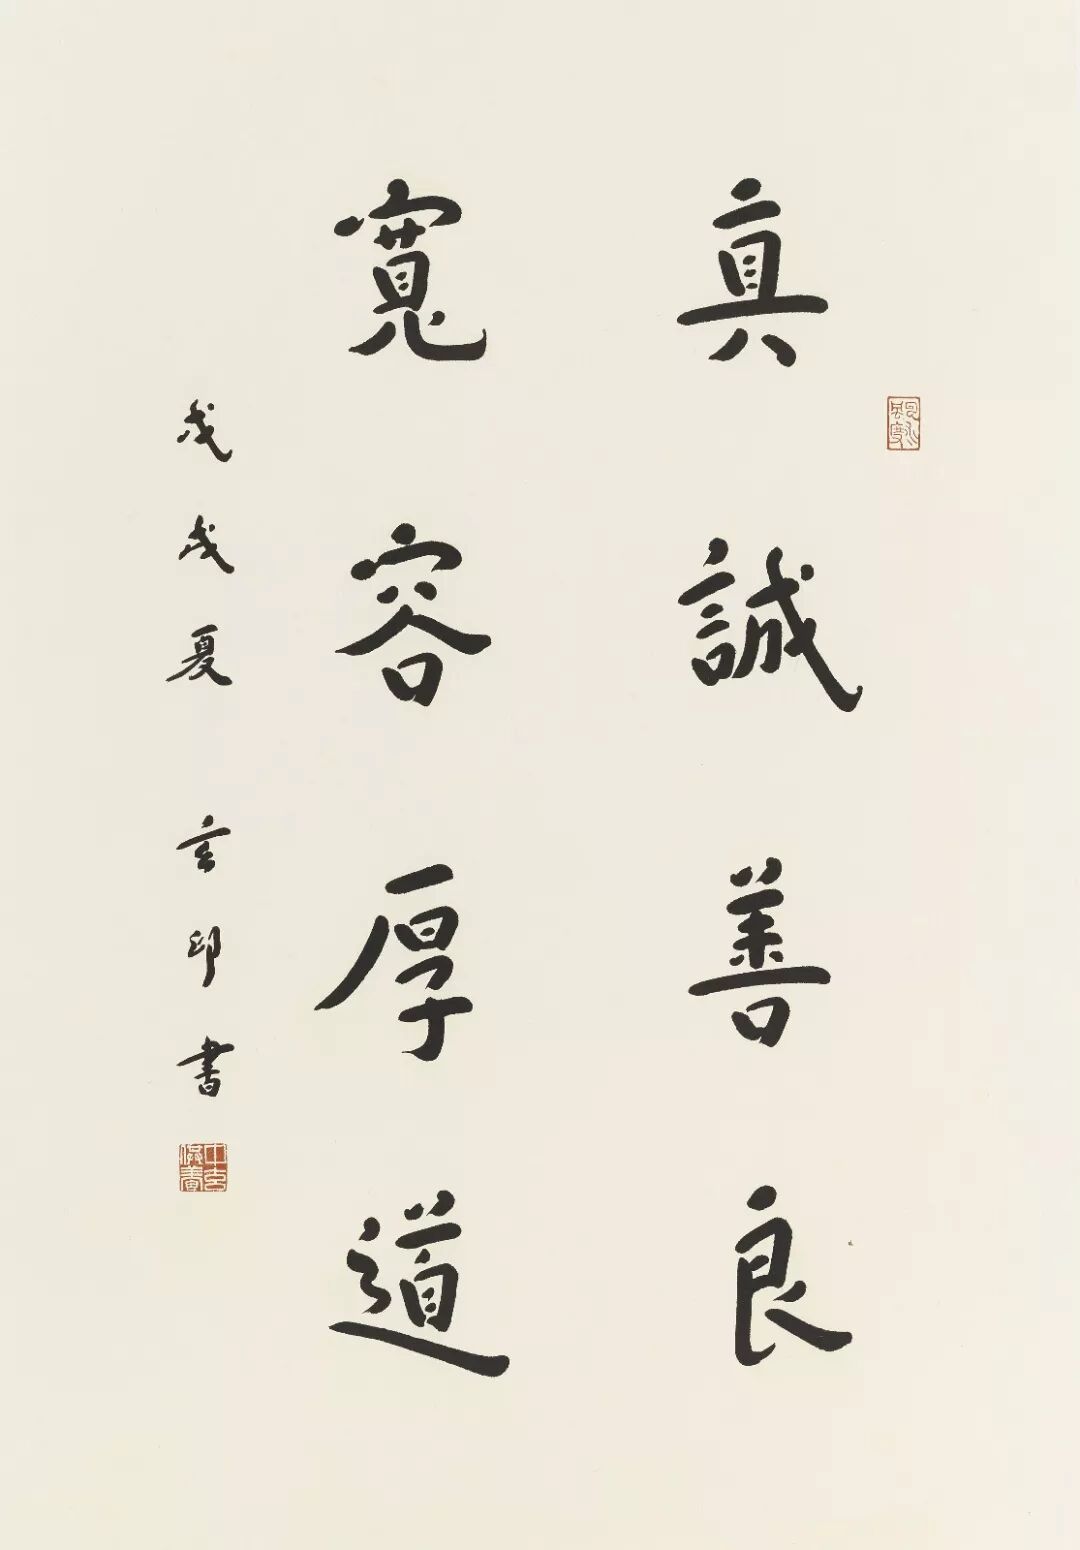 真誠善良
寬容厚道
戊戌夏 玄印書